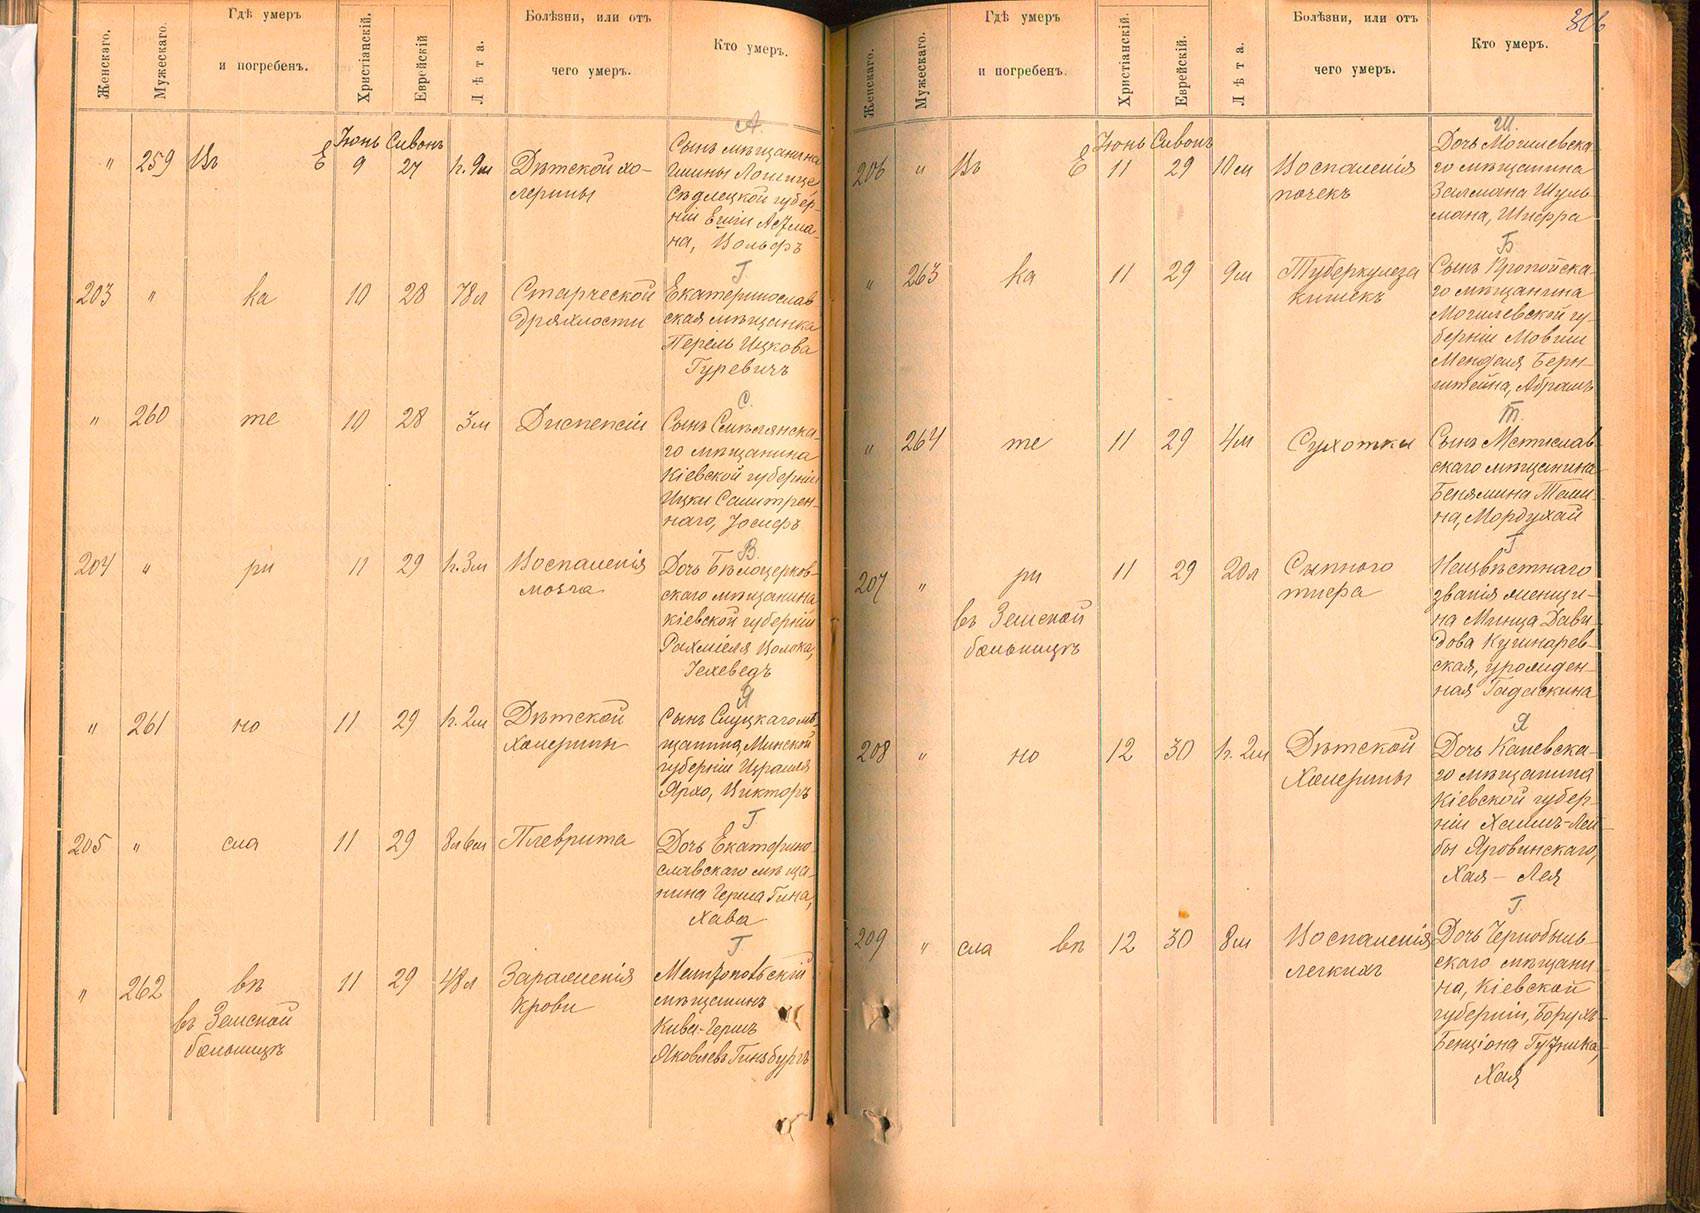 Женскаго.
Мужескаго.
Гдѣ умеръ
и погребенъ.
Христіанскій.
Еврейскій
Лѣта.
Болѣзни, или отъ
чего умеръ.
Кто умеръ.
А.
Іюнь Сивонъ
" 259 Въ Е 9 27 1г. 9м Дѣтской хо-
лерины
Сынъ мѣщанина
гмины
Сѣдлецкой губер-
ніи
на, Вольфъ
Г
203 " ка 10 28 78л Старческой
дряхлости
Екатеринослав
ская мѣщанка
Перель Ицкова
Гуревичъ
С.
" 260 те 10 28 3м Диспепсіи
Сынъ Смѣлянска-
го мѣщанина
Кіевской губерніи
Ицки
наго, Іосифъ
В.
204 " ри 11 29 1г. 3м Воспаленія
мозга
Дочь Бѣлоцерков-
скаго мѣщанина
Кіевской губерніи
Рахміеля Волока,
Іехеведъ
Я
" 261 но 11 29 1г. 2м Дѣтской
холерины
Сынъ Слуцкаго мѣ-
щанина Минской
губерніи Израиля
Ярхо, Викторъ
Г
205 " сла 11 29 8л 6м Плеврита
Дочь Екатерино-
славскаго мѣща-
нина Герша Гина,
Хава
Г
" 262 вѣ 11 29 48л Зараженія
крови
въ Земской
больницѣ
мѣщанинъ
Кива-Гершъ
Яковлевъ Гинзбургъ
306
Женскаго.
Мужескаго.
Гдѣ умеръ
и погребенъ.
Христіанскій.
Еврейскій.
Лѣта.
Болѣзни, или отъ
чего умеръ.
Кто умеръ.
Ш.
Іюнь Сивонъ
206 " Въ Е 11 29 10м Воспаленія
почекъ
Дочь Могилевска-
го мѣщанина
Залмана Шуль-
мана, Шифра
Б
" 263 ка 11 29 9м Туберкулеза
кишекъ
Сынъ Пропойска-
го мѣщанина
Могилевской гу-
берніи Мовши
Менделя Берн-
штейна, Абрамъ
Т.
" 264 те 11 29 4м Сухотки
Сынъ Мстислав-
скаго мѣщанина
Беньямина
на, Мордухай
Г
207 " ри 11 29 20л Сыпного
тифа
въ Земской
больницѣ
Неизвѣстнаго
званія женщи-
на Минца Дави-
дова Кушнарев-
ская, урожден-
ная
Я
208 " но 12 30 1г. 2м Дѣтской
холерины
Дочь Каневска-
го мѣщанина
Кіевской губер-
ніи Хаимъ-Лей-
бы Яровинскаго,
Хая - Лея
Г.
209 " сла вѣ 12 30 8м Воспаленія
легкихъ
Дочь Чернобыль-
скаго мѣщани-
на, Кіевской
губерніи, Борухъ-
Бенціона Гузника,
Хая